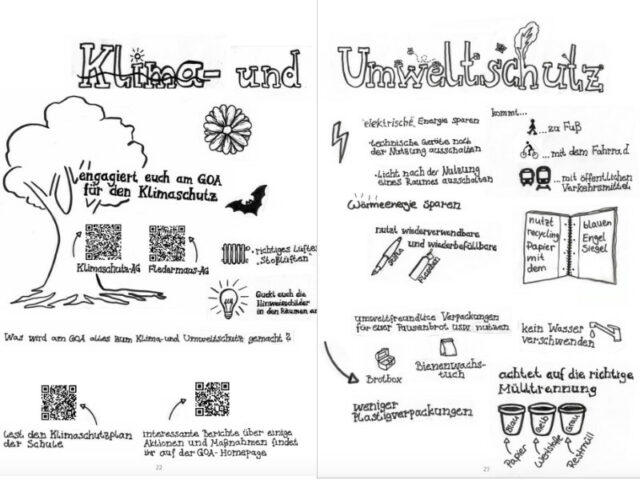 Klima- und
engagiert euch am GOA
für den Klimaschutz
Klimaschutz-AG
Fledermaus-AG
• richtiges Lüften
• Stoßlüften
Guckt euch die
Hinweisschilder
in den Räumen
Was wird am GOA alles zum Klima- und Umweltschutz gemacht?
lest den Klimaschutzplan
der Schule
interessante Berichte über einige
Aktionen und Maßnahmen findet
ihr auf der GOA-Homepage
22
Umweltschutz
elektrische Energie sparen
• technische Geräte nach
der Nutzung ausschalten
• Licht nach der Nutzung
eines Raumes ausschalten
Wärmeenergie sparen
kommt...
...zu Fuß
...mit dem Fahrrad
...mit öffentlichen
Verkehrsmittel
nutzt wiederverwendbare
und wiederbefüllbare
Stifte
nutzt
recycling
Papier
mit
dem
blauen
Engel
Siegel
umweltfreundliche Verpackungen
für euer Pausenbrot usw. nutzen
Brotbox
Bienenwachs-
tuch
weniger
Plastigverpackungen
kein Wasser
verschwenden
achtet auf die richtige
Mülltrennung
Blau
Gelb
Grau
Papier
Wertstoffe
Restmüll
23